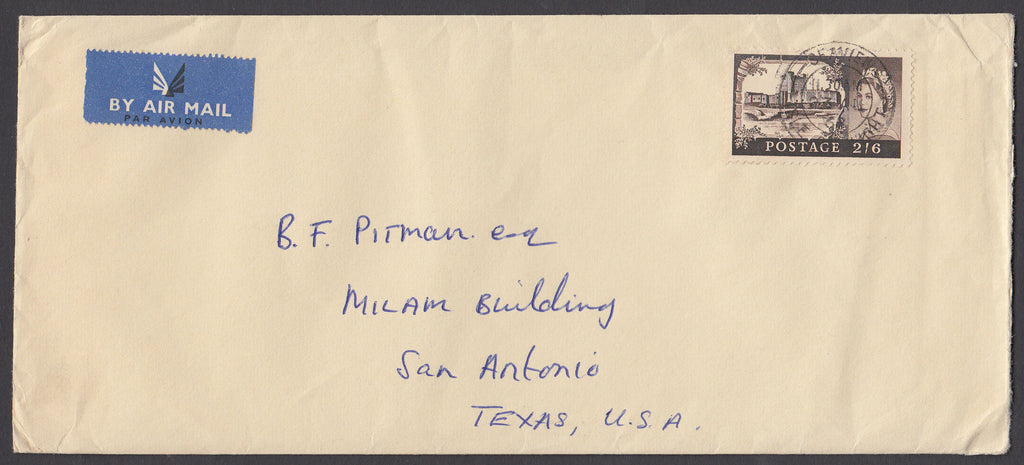 BY AIR MAIL
PAR AVION
POSTAGE 2/6
B. F. Pitman. esq
Milam Building
San Antonio
TEXAS, U.S.A.